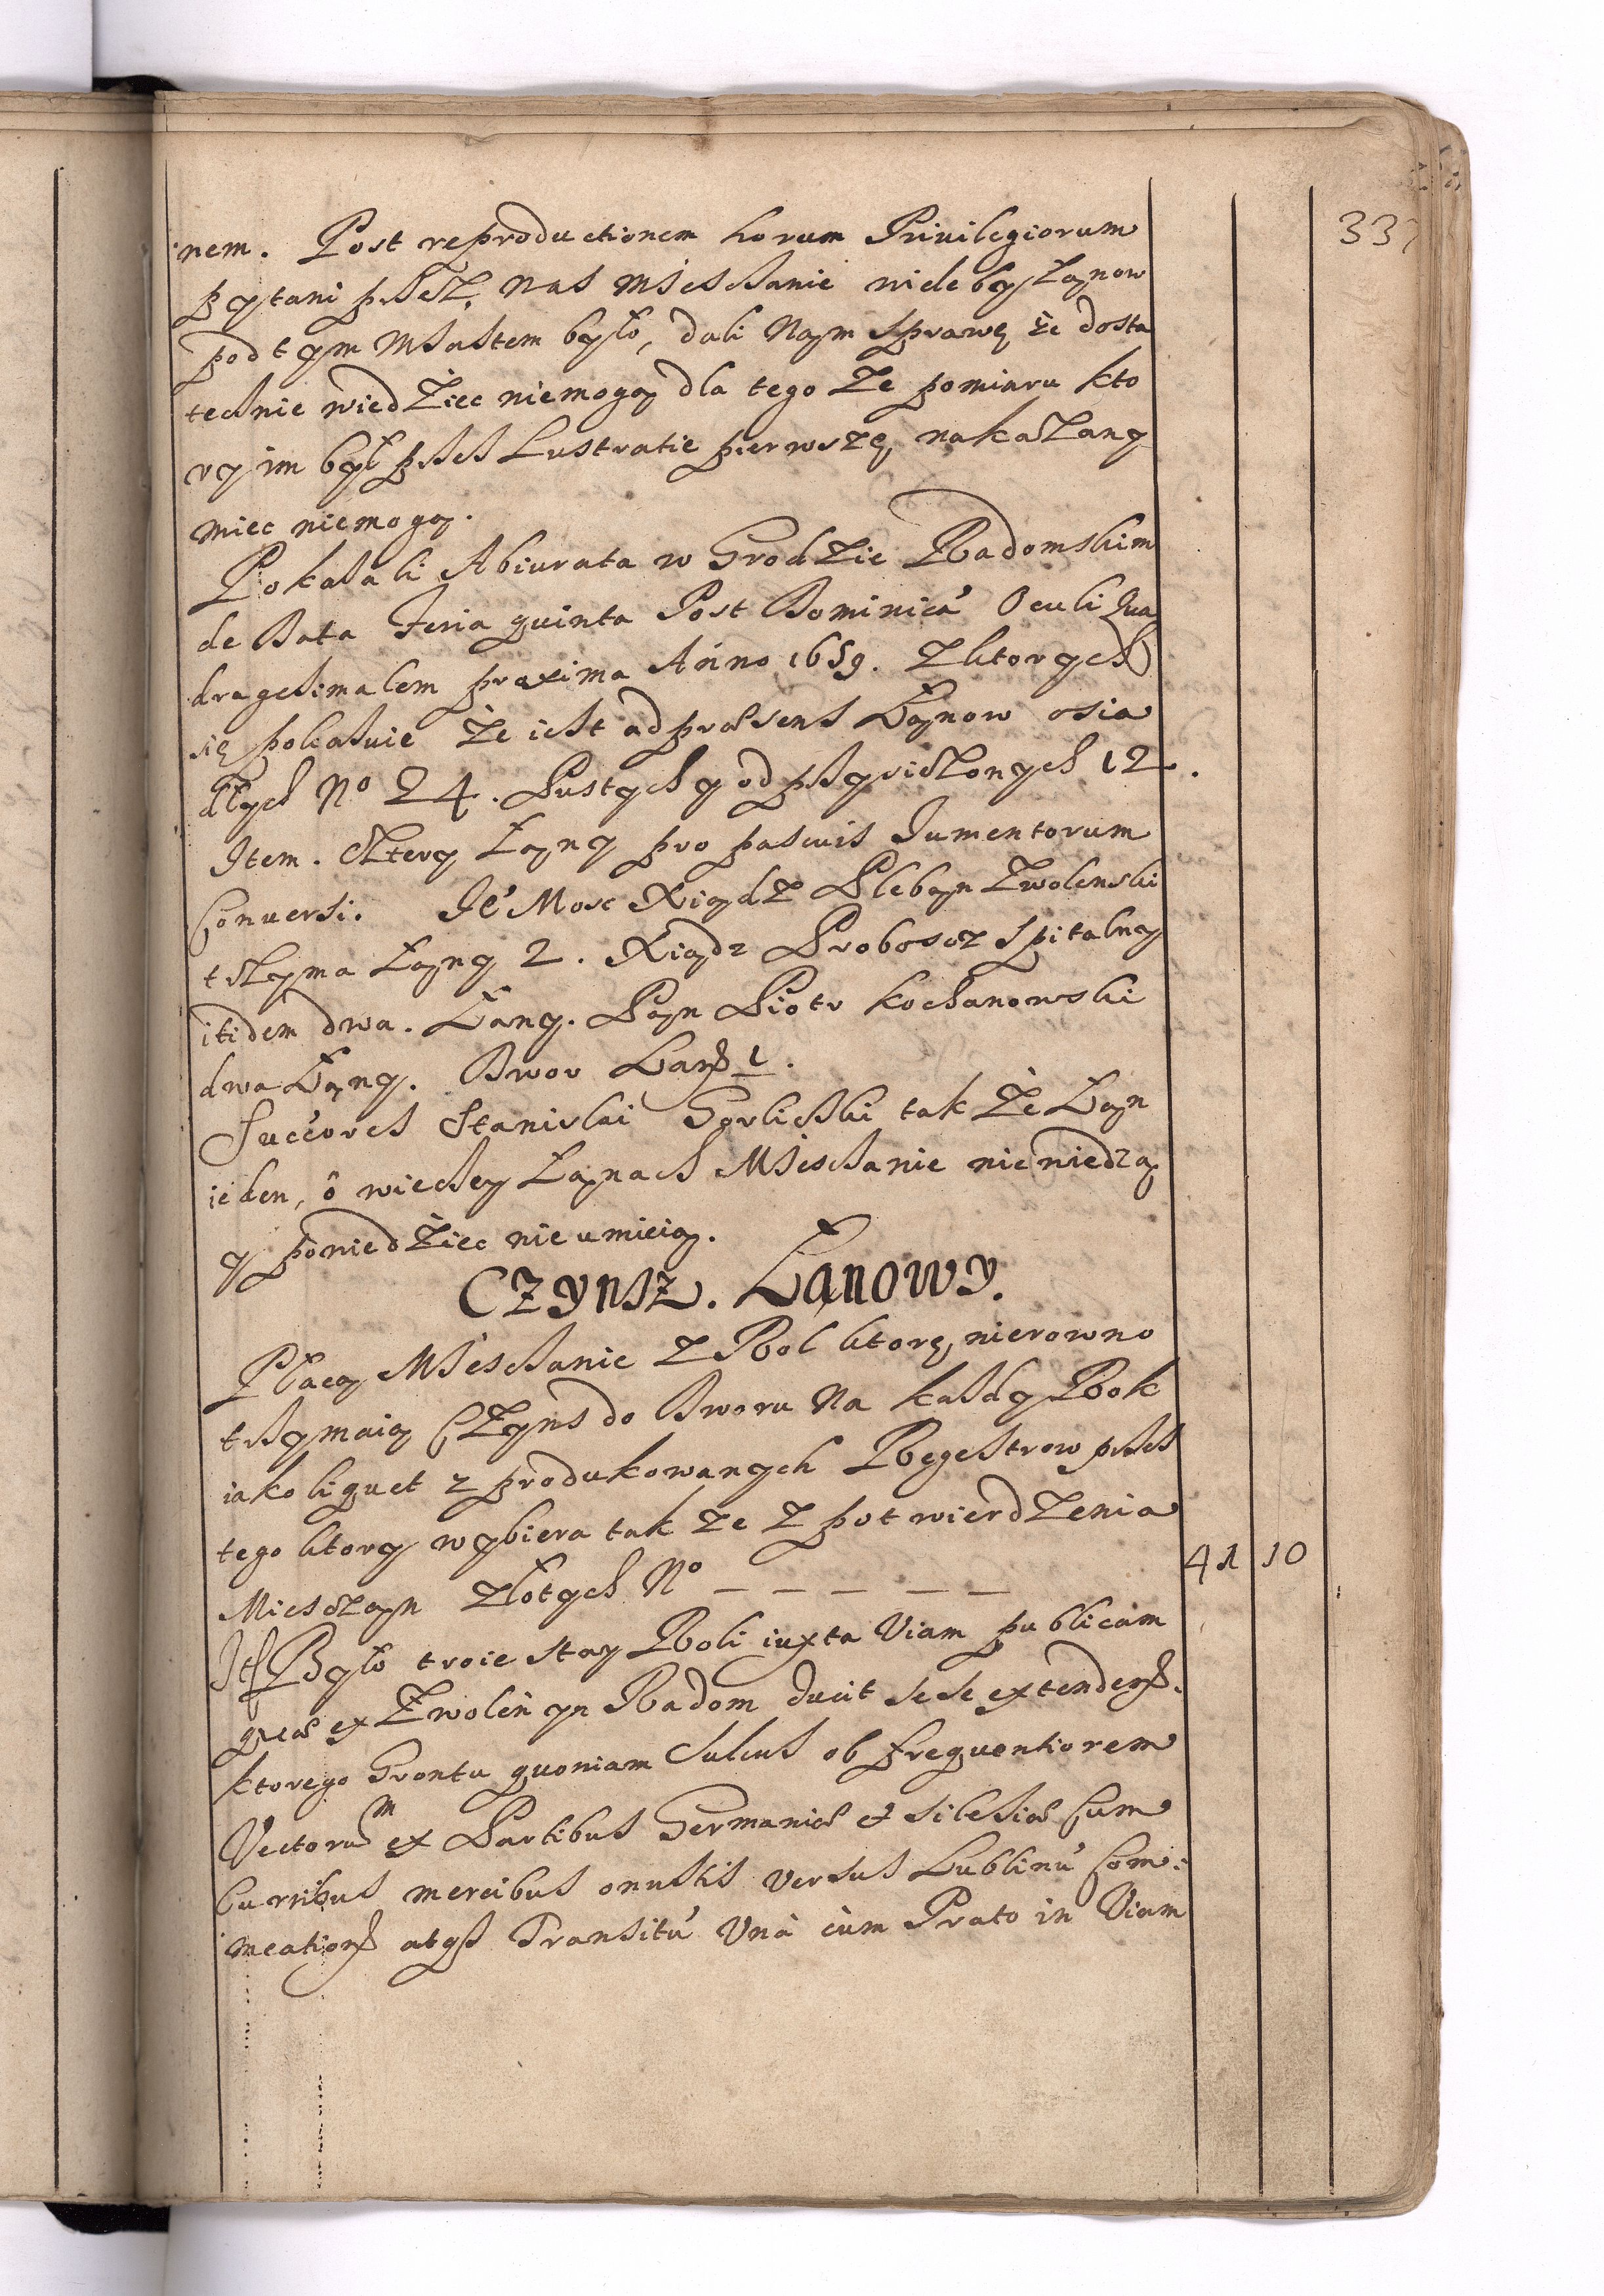 337
nem. Post reproductionem horum Privilegiorum
pytani przez nas Miesczanie wieleby Łąnow
pod tym Miastem było, dali Nąm sprawę że dosta
tecznie wiedziec niemogą dla tego że pomiaru kto
ry im był przes Lustratie pierwszę nakazany
miec niemogą.
Pokazali Abiurata w Grodzie Radomskim
de Data Feria quinta Post Dominicá Oculi Qua
dragesimalem proxima Anno 1659. z ktorych
się pokasuie że iest ad præsens Łąnow osia
dłych No 24. Pustych y od przysiezonych 12.
Item. Cztery Łąny pro pascuis Iumentorum
Conuersi. Ie Mosc Xiądz Plebąn Zwolenski
trzyma Łąny 2. Xiądz Proboscz Spitalny
itidem dwa. Łany. Pąn Piotr Kochanowski
dwa Łąny. Dwor Łan 1.
Succores Stanislai Gorliczki tak że Łąn
ieden, o wieczey Łąnach Miesczanie nie wiedzą
y powiedziec nie umieią.
Czynsz. Łanowy.
Płacą Miesczanie z Rol ktorę nierowno
trzymaią Czyns do Dworu Na kazdy Rok
iako liquet z produkowanych Regestrow przes
tego ktory wybiera tak ze z potwierdzenia
Miescząn złotych No _ _ _ _ _ 41 10
Itm Było troie stay Roli iuxta Viam publicam
quæ ex Zwolen in Radom ducit sese extenden.
ktorego Grontu quoniam Sulcus ob frequentiorem
Vectorum ex Partibus Germaniæ et Silesiæ Cum
Curribus mercibus onustis versus Lublinú Com:
meation atq Transitú Vná cum Prato in Viam